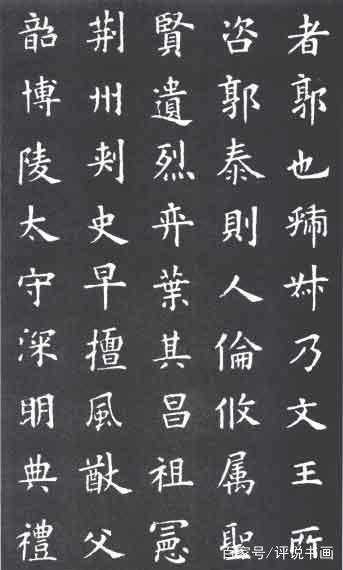 者郭也虢叔乃文王所
咨郭泰則人倫攸属聖
賢遺烈弈葉其昌祖憲
荆州刾史早擅風猷父
韶博陵太守深明典禮
百家号/评说书画